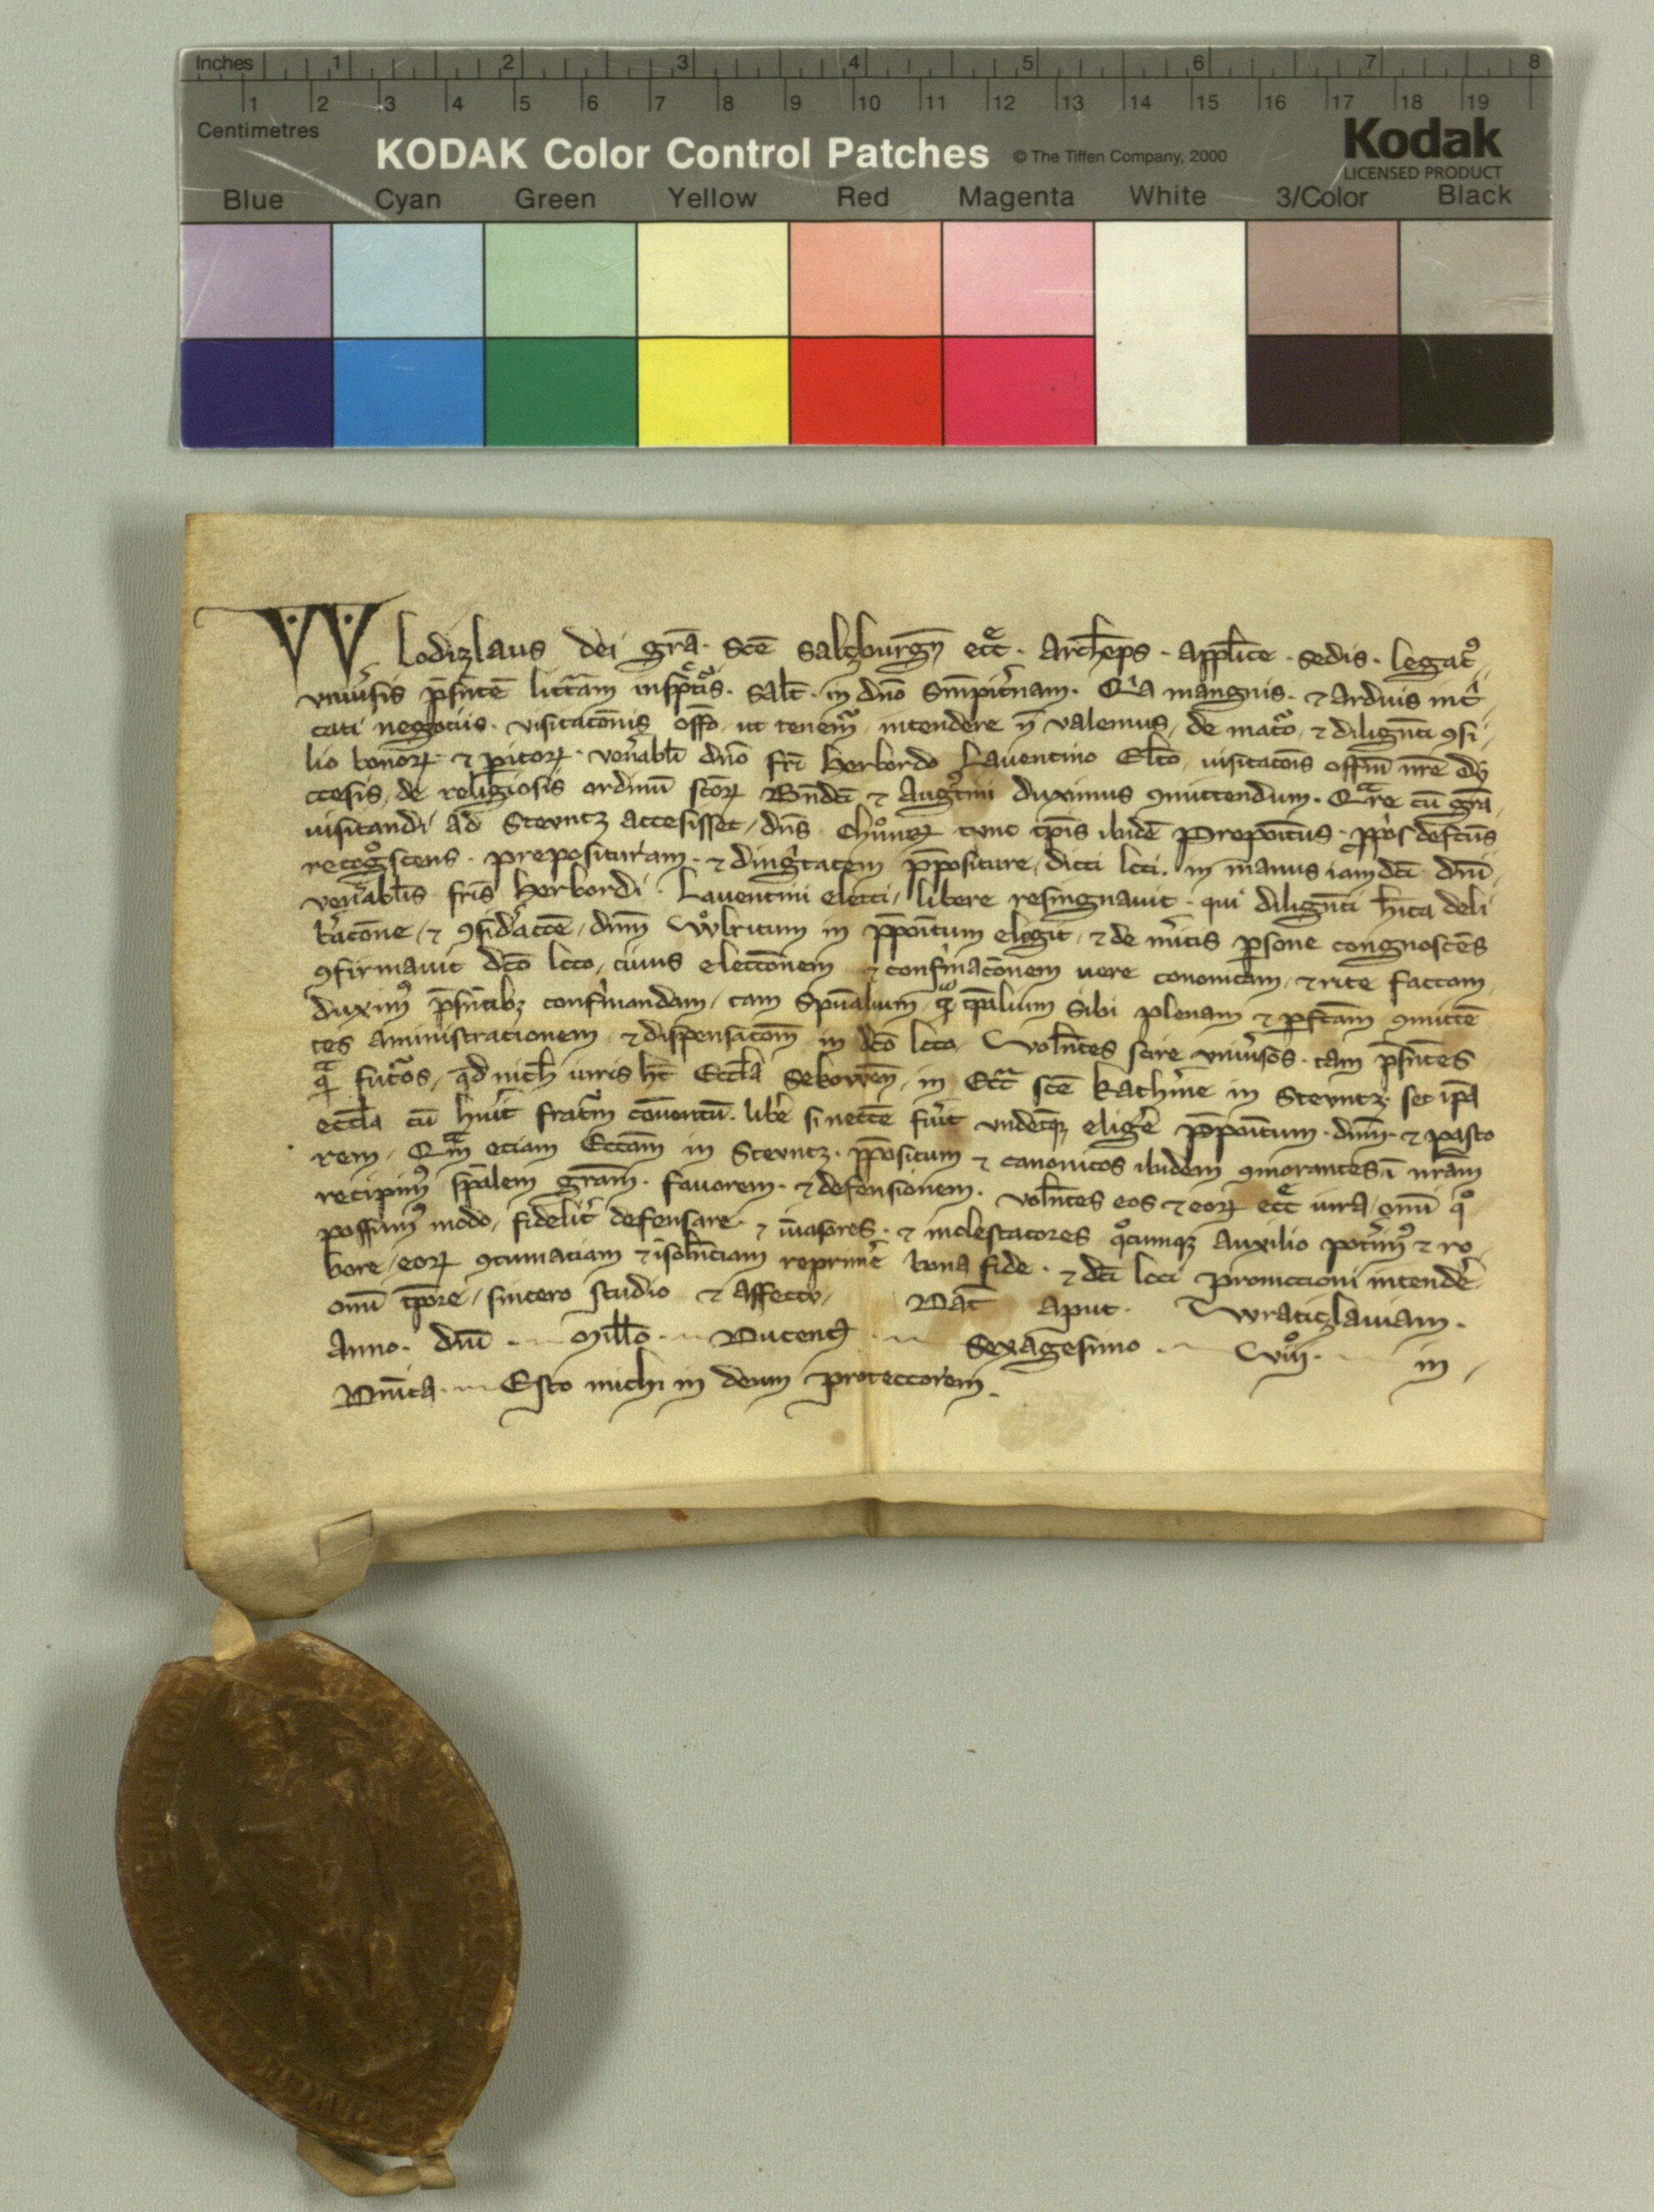 Inches 1 2 3 4 5 6 7 8
1 2 3 4 5 6 7 8 9 10 11 12 13 14 15 16 17 18 19
Centimetres
KODAK Color Control Patches © The Tiffen Company, 2000 Kodak
LICENSED PRODUCT
Blue Cyan Green Yellow Red Magenta White 3/Color Black
Wlodizlaus dei grā. scē salczburgn̄ ecc̄. Archēps. appl̄ice. sedis. legatꝰ
vniūsis p̄sn̄tē litt̄am inspc̄tis. Salt̄. in dn̄o Smp̄it̄nam. Qia mangnis. ⁊ arduis int̄
cati negociis. visitacōnis offō. ut tenem̄. intendere n̄ valemus, de mat̄o. ⁊ dilign̄ti ꝯsi
lio bonoꝝ. ⁊ p̄itoꝝ. ven̄abl̄i dn̄o fr̄i herbordo Lauentino El̄co, uisitacōis offm̄ nr̄e dy
ocesis, de religiosis ordinū sc̄oꝝ Bn̄dc̄i ⁊ Augs̄tini duximus ꝯmittendum. Qare cū grā
uisitandi ad Stevntz accesisset, dn̄s tunc tp̄is ibidē Prepoītus. ꝓpos defc̄us
recogͦscens. preposituram. ⁊ dingitatem p̄posicure, dicti loci. in manus iam dc̄i dn̄i
ven̄abl̄is fr̄is herbordi. Lauentini electi, libere resingnauit. qui dilign̄ti hīta deli
b̄acōne, ⁊ ꝯsid̄accōe, dn̄m Vͦlricum in p̄poītum elegit, ⁊ de m̄itis p̄sone congnoscēs
ꝯfirmauit dc̄o loco, cuius eleccōnem ⁊ confm̄acōnem uere cononicam, ⁊ rite factam
duximꝰ p̄sn̄tibꝫ confirmandam, tam Spūalium, q̄ tp̄alium sibi plenam ⁊ p̄fc̄am ꝯmittē
tes aministracionem ⁊ dispensacōm̄ in dc̄o loco. Voln̄tes scire vniūsos. tam p̄sn̄tes
q̄ fut̄os, qd nich̄ iuris hꝫ Eccl̄a Sekowēn, in Ecc̄a sc̄e kath̄ine in Stevntz. set ip̄a
eccl̄a cū hui᷑ fratrm̄ conuentū. libē si necc̄e fūit undecūqꝫ eligē p̄poītum. dn̄m. ⁊ pasto
rem. Qm̄ eciam Ecc̄am in Stevntz. p̄positum ⁊ canonicos ibidem ꝯmorantes ī nr̄am
recipimꝰ sp̄alem gr̄am. fauorem. ⁊ defensionem. voln̄tes eos ⁊ eoꝝ ecc̄e iura, om̄i qͦ
possumꝰ modo, fidelit̄ defensare. ⁊ īuasores. ⁊ molestatores qͦcumqꝫ auxilio pot̄imꝰ ⁊ ro
bore, eoꝝ ꝯtumaciam ⁊ īsoln̄ciam reprimē bona fide. ⁊ dc̄i loci promocioni intendē
om̄i tp̄ore, sincero studio ⁊ affectu, Dat̄ aput. Wraticzlauiam.
Anno. dn̄i. Mill̄o. Ducentͦ. Sexagesimo. Cviiͦi. in
Dn̄ica. Esto michi in deum protectorem.